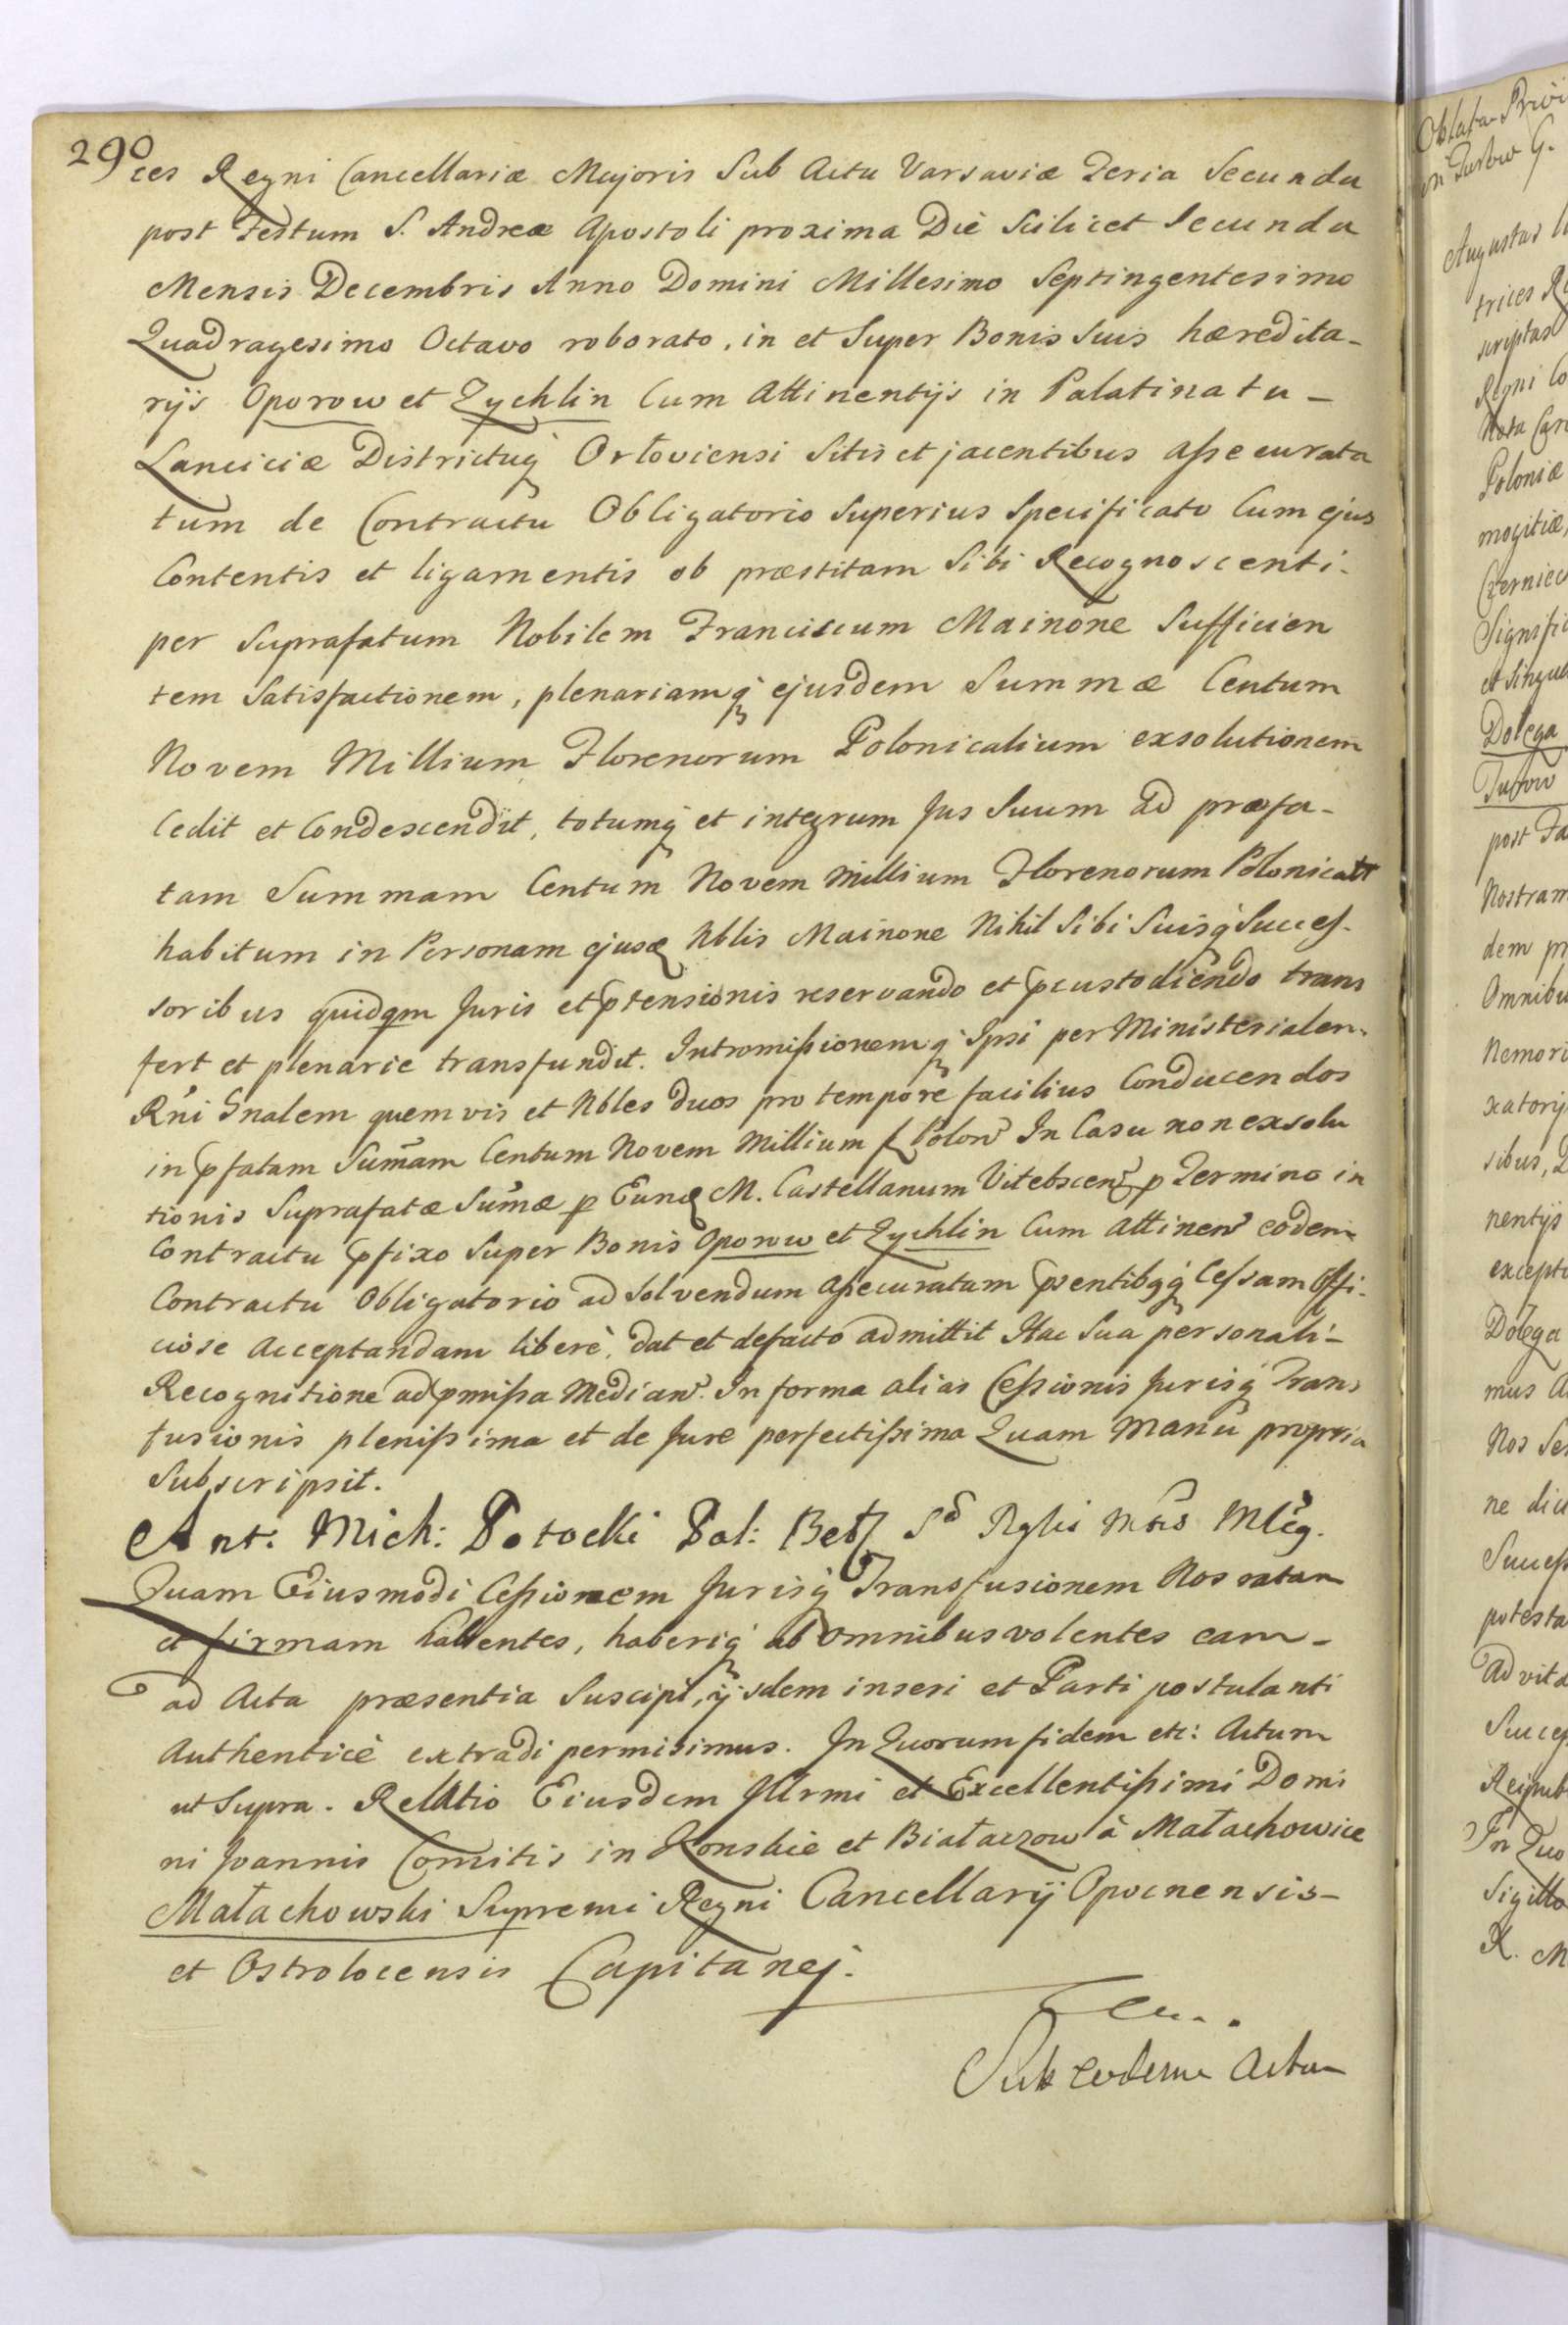 290
ces Regni Cancellariæ Majoris Sub Actu Varsaviæ Feria Secunda
post Festum S. Andreæ Apostoli proxima Diè Scilicet Secunda
Mensis Decembris Anno Domini Millesimo Septingentesimo
Quadragesimo Octavo roborato, in et Super Bonis Suis hæredita-
rijs Oporow et Zychlin Cum Attinentijs in Palatinatu -
Lanciciæ Districtuq́ Orłoviensi Sitis et jacentibus assecurata
tum de Contractu Obligatorio Superius Specificato Cum ejus
Contentis et ligamentis ob præstitam Sibi Recognoscenti-
per Suprafatum Nobilem Franciscum Mainone Sufficien
tem Satisfactionem, plenariamq́ ejusdem Summæ Centum
Novem Millium Florenorum Polonicalium exsolutionem
Cedit et Condescendit, totumq́ et integrum Jus Suum ad præfa-
tam Summam Centum Novem Millium Florenorum Polonicall
habitum in Personam ejusd Nblis Mainone Nihil Sibi Suisq́ Succes-
soribus quidqm Juris et ptensionis reservando et pcustodiendo trans
fert et plenarie transfundit. Intromissionemq́ Ipsi per Ministerialem
Rńi Gnalem quemvis et Nbles duos pro tempore facilius Conducendos
in pfatam Sum̃am Centum Novem Millium f Polon̄ In Casu non exsolu
tionis Suprafatæ Sum̃æ p Eund M. Castellanum Vitebscen̄ p Termino in
Contractu pfixo Super Bonis Oporow et Zychlin Cum attinen̄ eodem
Contractu Obligatorio ad Solvendum assecuratam psentibqq́ Cessam Offi-
ciose acceptandam liberè, dat et defacto admittit Hac Sua personali-
Recognitione ad pmissa Median̄. In forma alias Cessionis Jurisq́ Trans
fusionis plenissima et de Jure perfectissima Quam manu propria
Subscripsit.
Ant: Mich: Potocki Pal: Betz
Quam Eiusmodi Cessionem Jurisq́ Transfusionem Nos ratam
et firmam habentes, haberiq́ ab omnibus volentes eam-
ad Acta præsentia Suscipi, ijsdem inseri et Parti postulanti
Authenticè extradi permisimus. In Quorum fidem etc: Actum
ut Supra. Relatio Eiusdem Illrmi et Excellentissimi Domi
ni Joannis Comitis in Konskie et Białaczow à Małachowice
Małachowski Supremi Regni Cancellarij Opocnensis-
et Ostrolocensis Capitanej.
Sub eodem Actu
Oblata Privi
in Gustow G.
Augustus
trices Re
scriptas
Regni Co
Nota Can
Poloniæ
mogitiæ,
Czerniec
Signific
et Singu
Dolega
post Fa
Nostram
dem pr
Omnibu
Nemori
xatorij
sibus,
nentijs
excepto
Dołęga
mus a
Nos Se
ne dic
Success
potesta
ad vitæ
Success
Reipub
In Quo
Sigillo
R. M